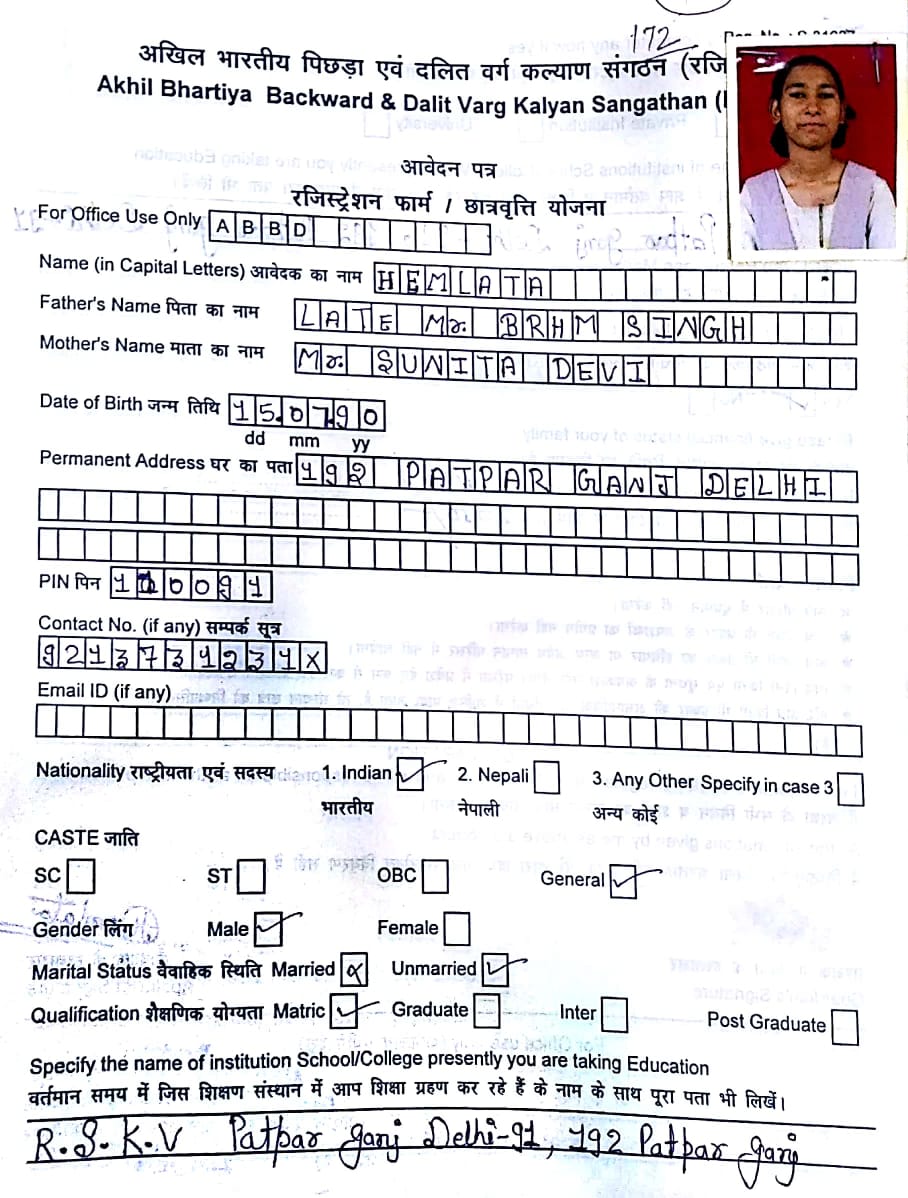 172
अखिल भारतीय पिछड़ा एवं दलित वर्ग कल्याण संगठन (रजि
Akhil Bhartiya Backward & Dalit Varg Kalyan Sangathan (
आवेदन पत्र
रजिस्ट्रेशन फार्म / छात्रवृत्ति योजना
For Office Use Only ABBD
Name (in Capital Letters) आवेदक का नाम HEMLATA
Father's Name पिता का नाम LATE Mr. BRHM SINGH
Mother's Name माता का नाम Mr. SUNITA DEVI
Date of Birth जन्म तिथि 15.07.90
dd mm yy
Permanent Address घर का पता 192 PATPAR GANJ DELHI
PIN पिन 110091
Contact No. (if any) सम्पर्क सूत्र
9213731231X
Email ID (if any)
Nationality राष्ट्रीयता एवं सदस्य 1. Indian 2. Nepali 3. Any Other Specify in case 3
भारतीय नेपाली अन्य कोई
CASTE जाति
SC ST OBC General
Gender लिंग Male Female
Marital Status वैवाहिक स्थिति Married Unmarried
Qualification शैक्षणिक योग्यता Matric Graduate Inter Post Graduate
Specify the name of institution School/College presently you are taking Education
वर्तमान समय में जिस शिक्षण संस्थान में आप शिक्षा ग्रहण कर रहे हैं के नाम के साथ पूरा पता भी लिखें।
R.S.K.V Patpar ganj Delhi-91, 192 Patpar ganj